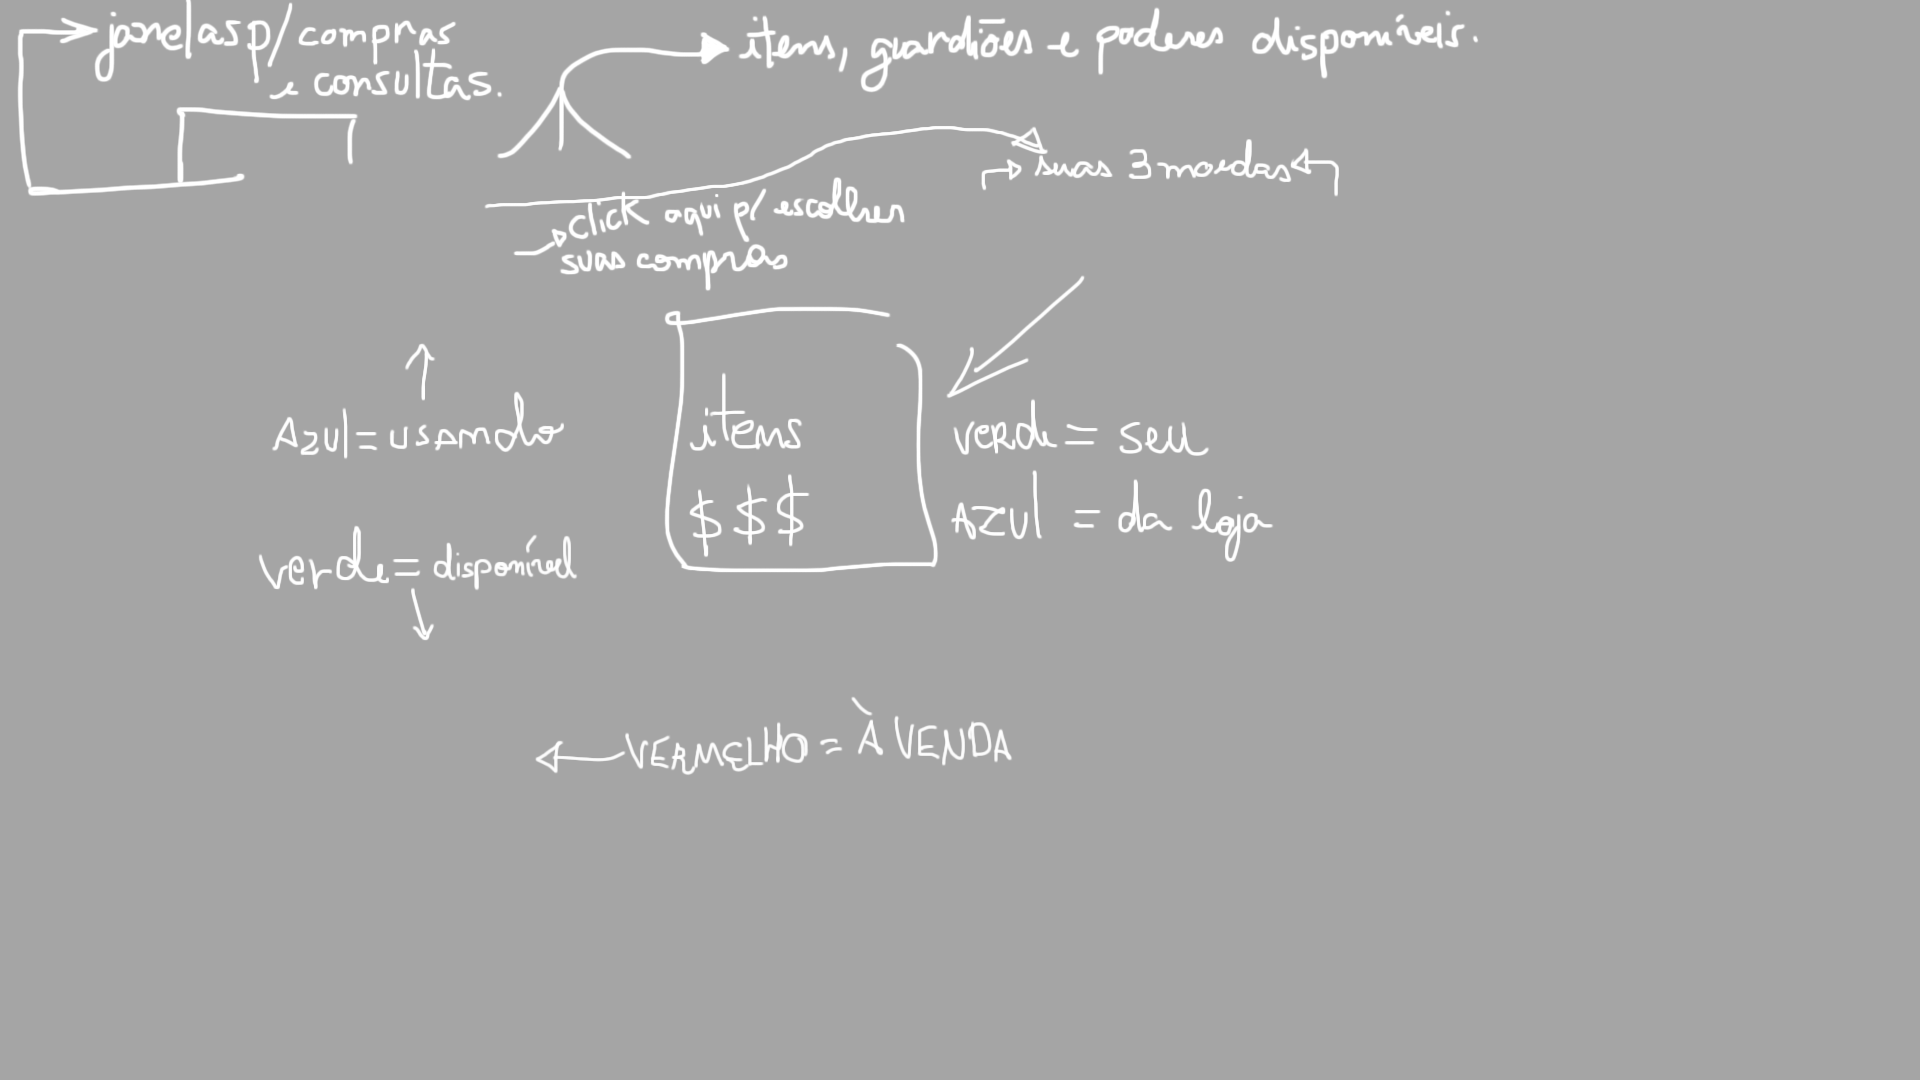 janelas p/ compras
e consultas.
itens, guardiões e poderes disponíveis.
suas 3 moedas
click aqui p/ escolher
suas compras
Azul = usando
verde = disponível
itens
$ $ $
verde = seu
Azul = da loja
VERMELHO = À VENDA